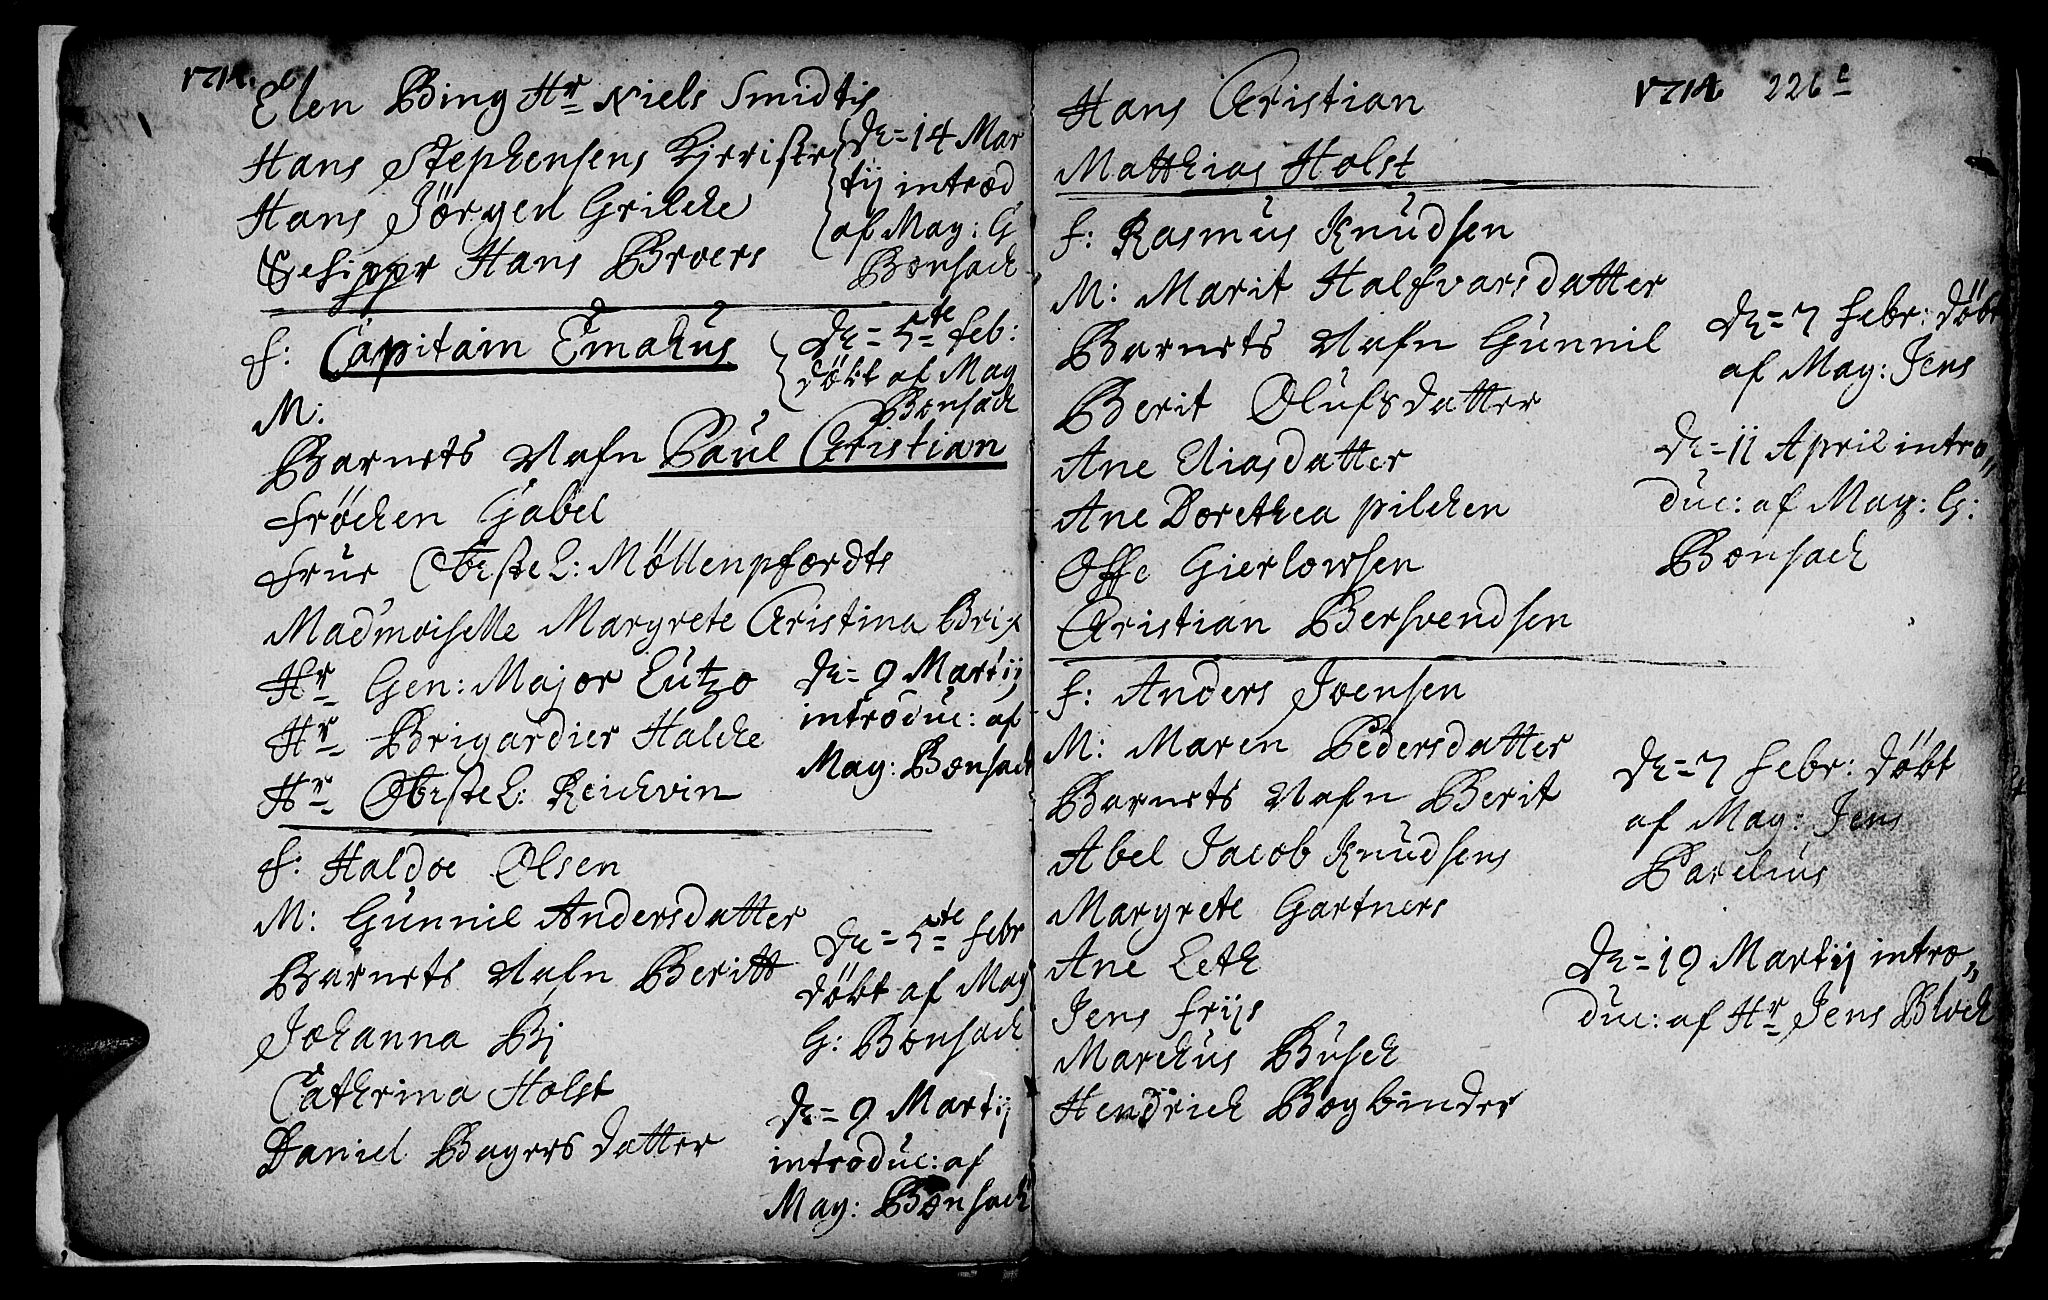 1714.
Elen Bing Hr Niels Smidtis
Hans Stephensens Kierriste
Hans Jörgen Grilche
Schippr Hans Broers
D= 14 Mar
tij introd
af Mag: G
Bonsach
f: Capitain Emahus
M:
Barnets Nafn Paul Christian
fröchen Gabel
frue Obiste L: Möllenpfordts
Madmoiselle Margrete Christina Brix
Hr Gen: Major Lutzo
Hr Brigardier Halche
Hr Obiste L: Reichvin
D= 5te feb:
döbt af Mag
Bonsach
D= 9 Martij
introduc: af
Mag: Bonsach
f: Haldoe Olsen
M: Gunnil Andersdatter
Barnets Nafn Beritt
Johanna Bj
Cathrina Holst
Daniel Bagers datter
D= 5te febr
döbt af Mag
G: Bonsach
D= 9 Martij
introduc: af
Mag: Bonsach
1714 226
Hans Christian
Matthias Holst
f: Rasmus Knudsen
M: Marit Halfvarsdatter
Barnets Nafn Gunnil
Berit Olufsdatter
Ane Eliasdatter
Ane Dorethea pilchen
Offe Gierlowsen
Christian Bersvendsen
D= 7 febr: döbt
af Mag: Jens
D= 11 April intro
duc: af Mag: G:
Bonsach
f: Anders Joensen
M: Maren Pedersdatter
Barnets Nafn Berit
Abel Jacob Knudsens
Margrete Gartners
Ane Leth
Jens frijs
Marchus Busch
Hendrich Bogbinder
D= 7 febr: döbt
af Mag: Jens
Parelius
D= 19 Martij intro
duc: af Hr Jens Bloch